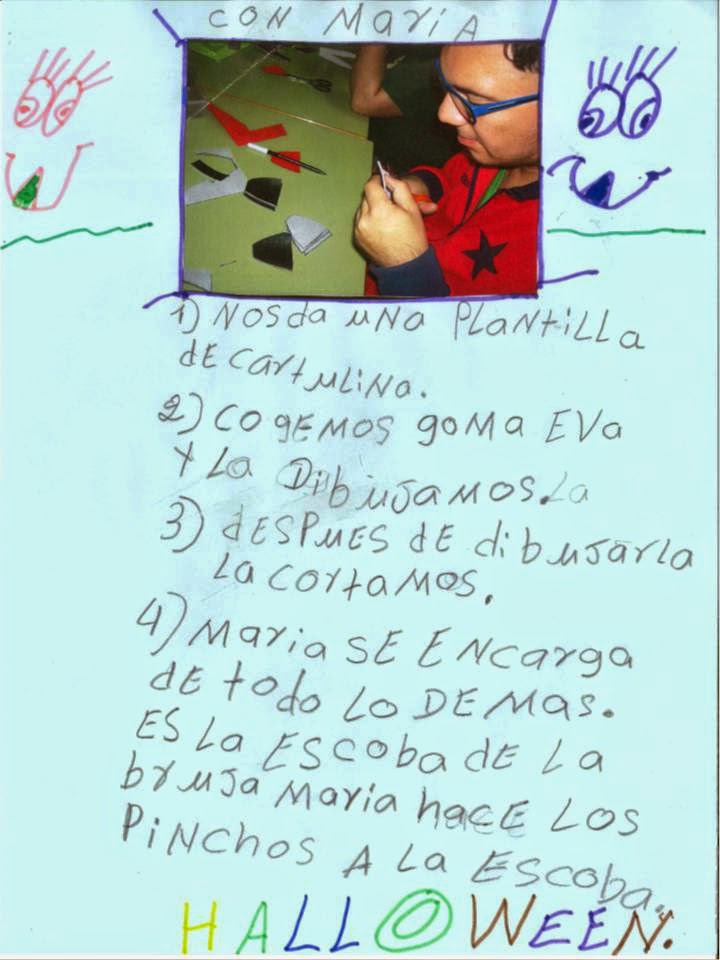 CON MaRiA
1) NOSda UNa PLaNtiLLa
dE CartULiNa.
2) COgEMOS goMa EVa
Y La DibUJaMOS.La
3) dESPUES dE dibUJarLa
La CortaMos.
4) Maria SE ENCarga
dE todo Lo DEMas.
ES La ESCOba dE La
brUJa Maria hace Los
PiNChos A La ESCOba.
HALLOWEEN.